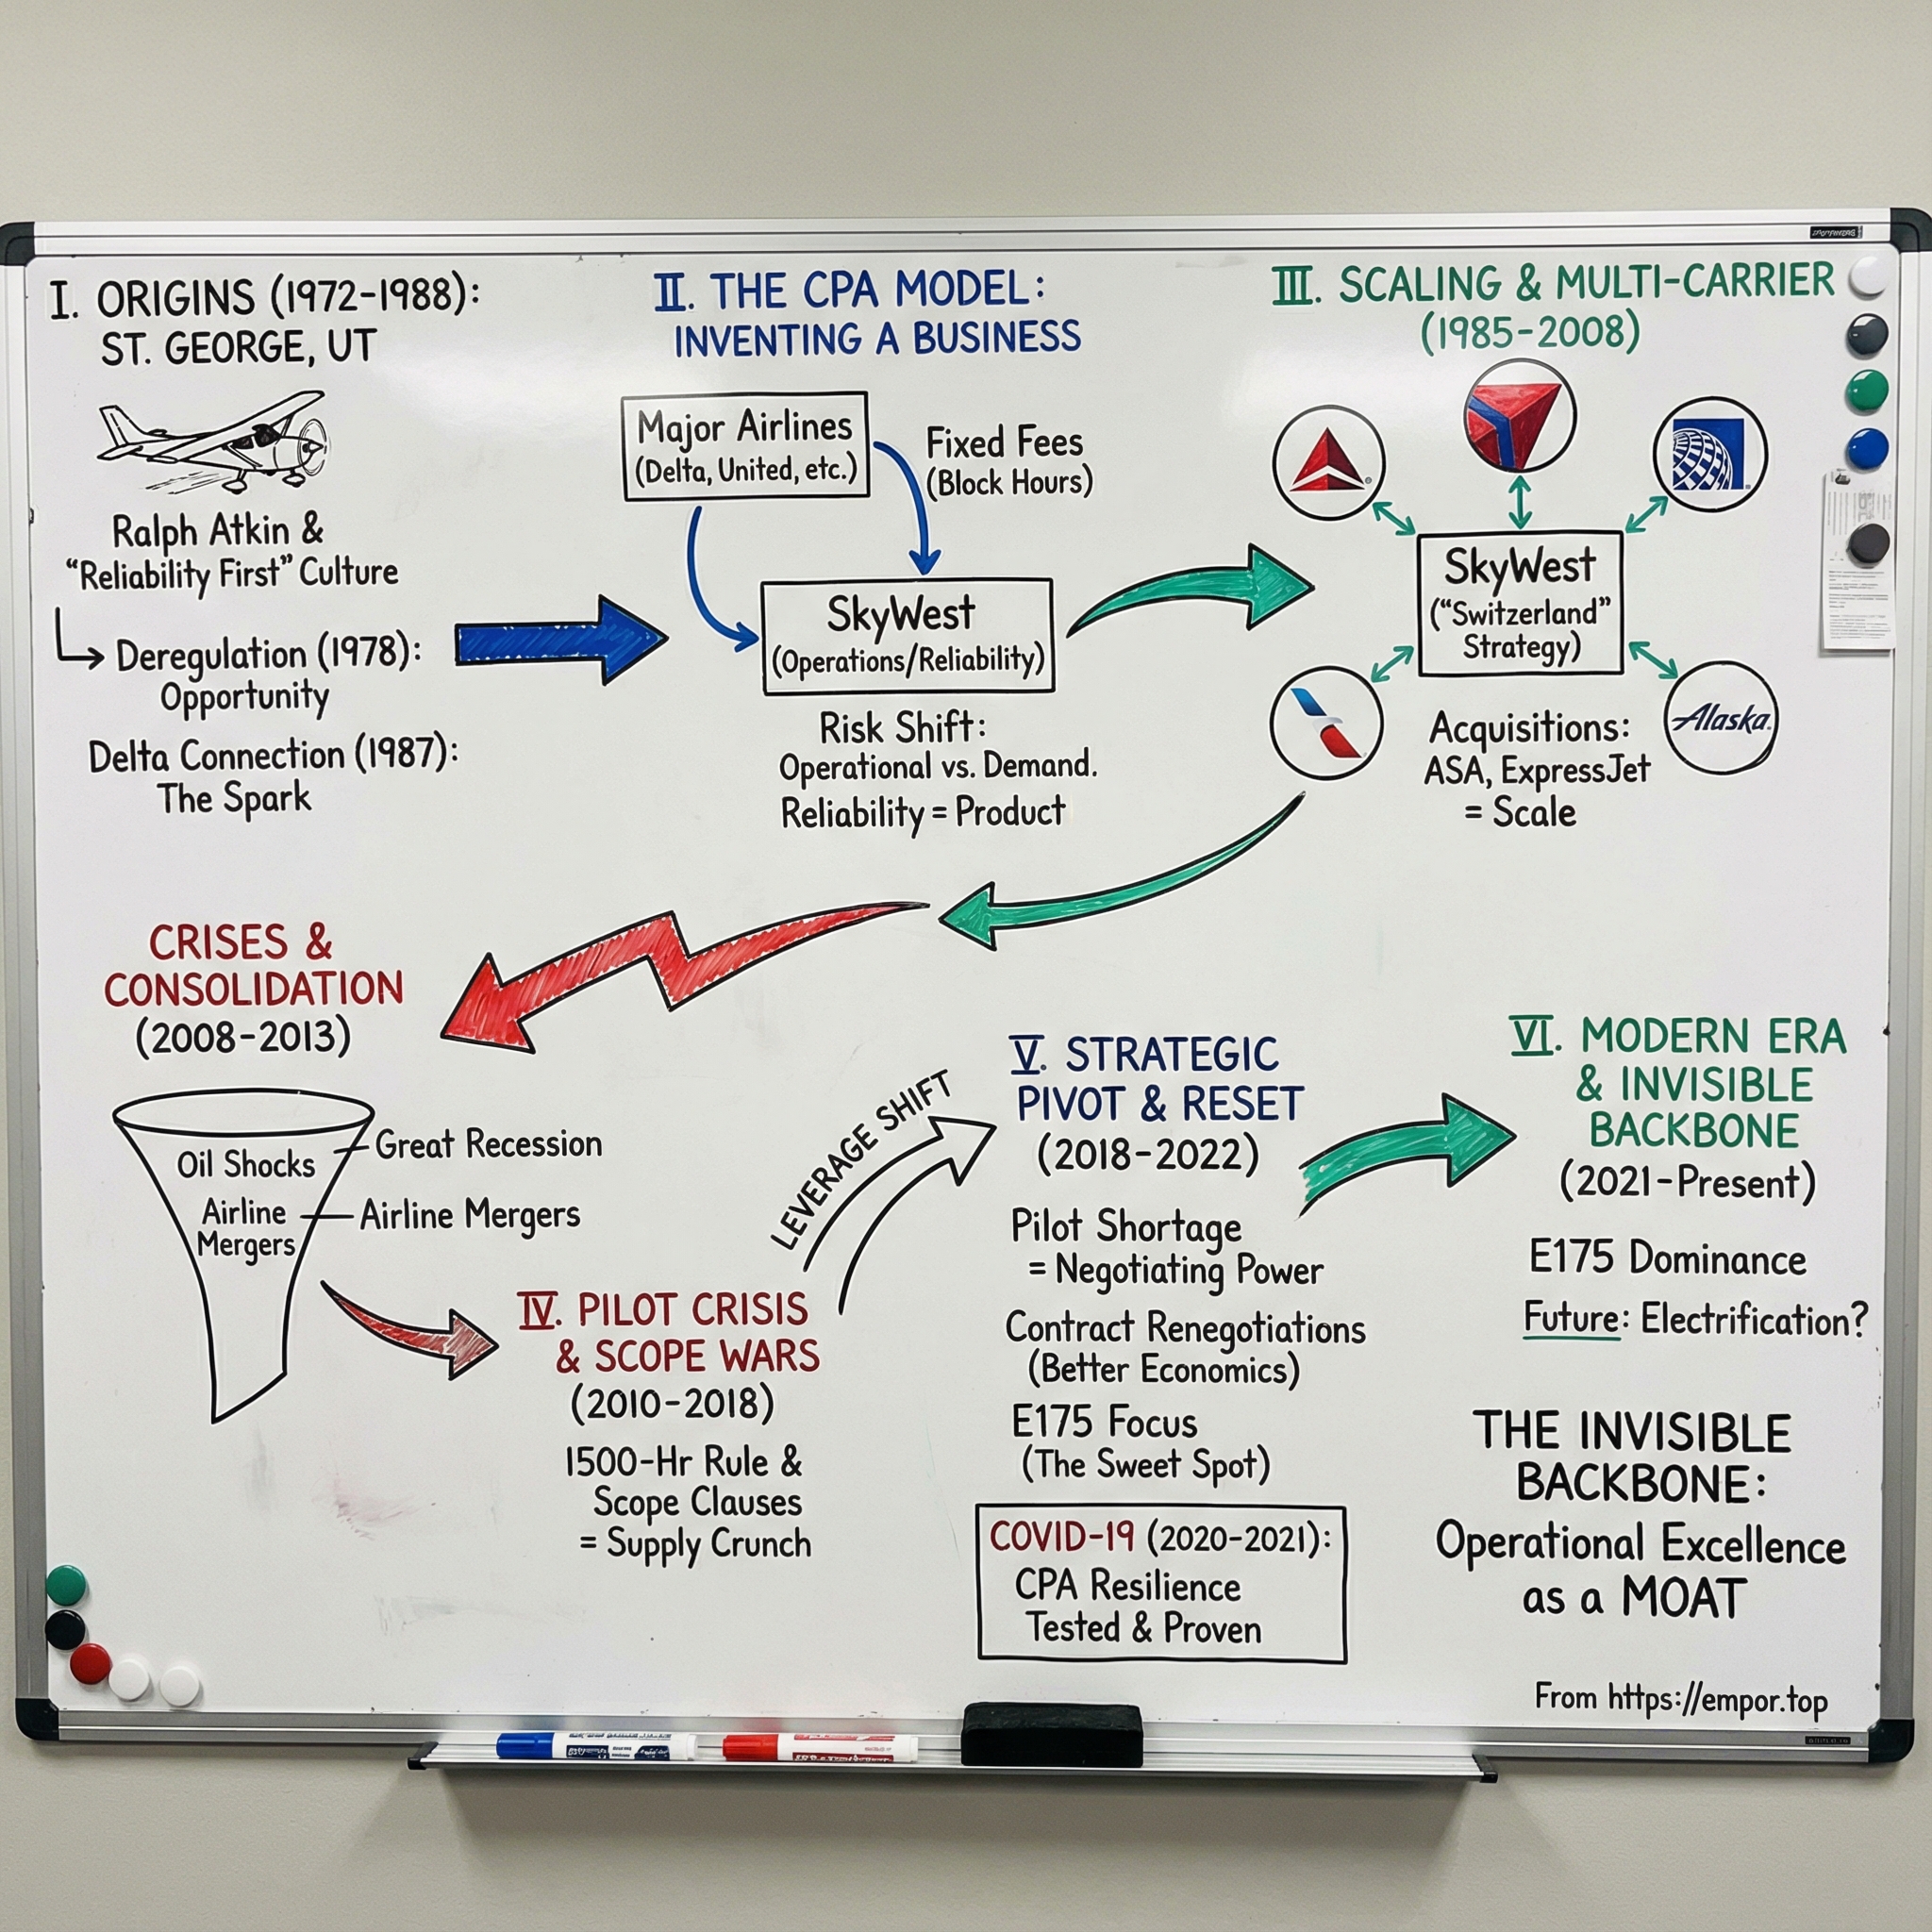 I. ORIGINS (1972-1988):
ST. GEORGE, UT
Ralph Atkin &
"Reliability First" Culture
Deregulation (1978):
Opportunity
Delta Connection (1987):
The Spark
II. THE CPA MODEL:
INVENTING A BUSINESS
Major Airlines
(Delta, United, etc.)
Fixed Fees
(Block Hours)
SkyWest
(Operations/Reliability)
Risk Shift:
Operational vs. Demand.
Reliability = Product
III. SCALING & MULTI-CARRIER
(1985-2008)
SkyWest
("Switzerland"
Strategy)
Alaska.
Acquisitions:
ASA, ExpressJet
= Scale
CRISES &
CONSOLIDATION
(2008-2013)
Oil Shocks
Great Recession
Airline
Mergers
Airline Mergers
IV. PILOT CRISIS
& SCOPE WARS
(2010-2018)
1500-Hr Rule &
Scope Clauses
= Supply Crunch
LEVERAGE SHIFT
V. STRATEGIC
PIVOT & RESET
(2018-2022)
Pilot Shortage
= Negotiating Power
Contract Renegotiations
(Better Economics)
E175 Focus
(The Sweet Spot)
COVID-19 (2020-2021):
CPA Resilience
Tested & Proven
VI. MODERN ERA
& INVISIBLE
BACKBONE
(2021-Present)
E175 Dominance
Future: Electrification?
THE INVISIBLE
BACKBONE:
Operational Excellence
as a MOAT
From https://empor.top